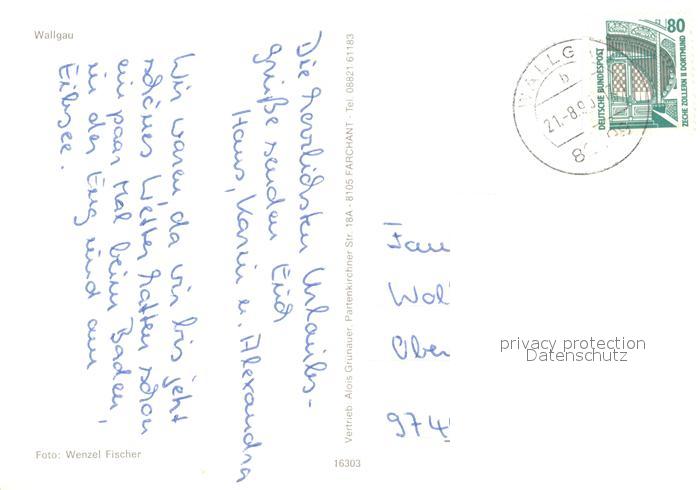 Wallgau
Die herzlichsten Urlaubs-
grüße senden Euch
Hans, Karin u. Alexandra
Wir waren, da wir bis jetzt
schönes Wetter hatten schon
ein paar Mal beim Baden,
in der Eng und am
Eibsee.
Foto: Wenzel Fischer
Vertrieb Alois Grünauer, Partenkirchner Str. 18A · 8105 FARCHANT · Tel. 08821-61183
16303
80
DEUTSCHE BUNDESPOST
ZECHE ZOLLERN II DORTMUND
WALLG
b
21.-8.9
Fam
Wol
Ober
974
privacy protection
Datenschutz